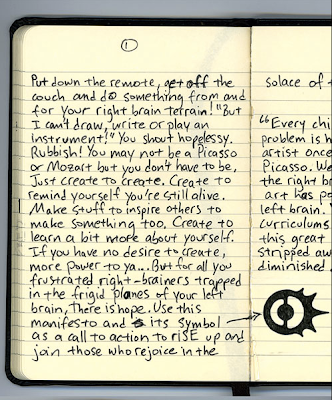 1
Put down the remote, get off the
couch and do something from and
for your right brain terrain! "But
I can't draw, write or play an
instrument!" You shout hopelessy.
Rubbish! You may not be a Picasso
or Mozart but you don't have to be,
Just create to create. Create to
remind yourself you're still alive.
Make stuff to inspire others to
make something too. Create to
learn a bit more about yourself.
If you have no desire to create,
more power to ya... But for all you
frustrated right-brainers trapped
in the frigid planes of your left
brain, There is hope. Use this
manifesto and its symbol
as a call to action to riSE up and
join those who rejoice in the
solace of
"Every chi
problem is h
artist once
Picasso. We
the right b
art has pa
left brain.
curriculums
this great
stripped aw
diminished